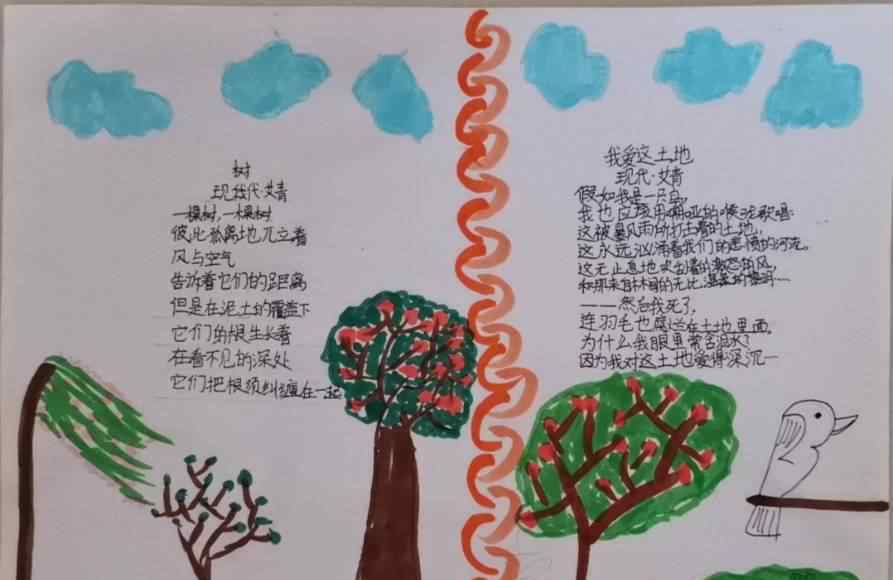 树
现代·艾青
一棵树,一棵树
彼此孤离地兀立着
风与空气
告诉着它们的距离
但是在泥土的覆盖下
它们的根生长着
在看不见的深处
它们把根须纠缠在一起
我爱这土地
现代·艾青
假如我是一只鸟,
我也应该用嘶哑的喉咙歌唱:
这被暴风雨所打击着的土地,
这永远汹涌着我们的悲愤的河流,
这无止息地吹刮着的激怒的风,
和那来自林间的无比温柔的黎明……
——然后我死了,
连羽毛也腐烂在土地里面。
为什么我眼里常含泪水?
因为我对这土地爱得深沉…